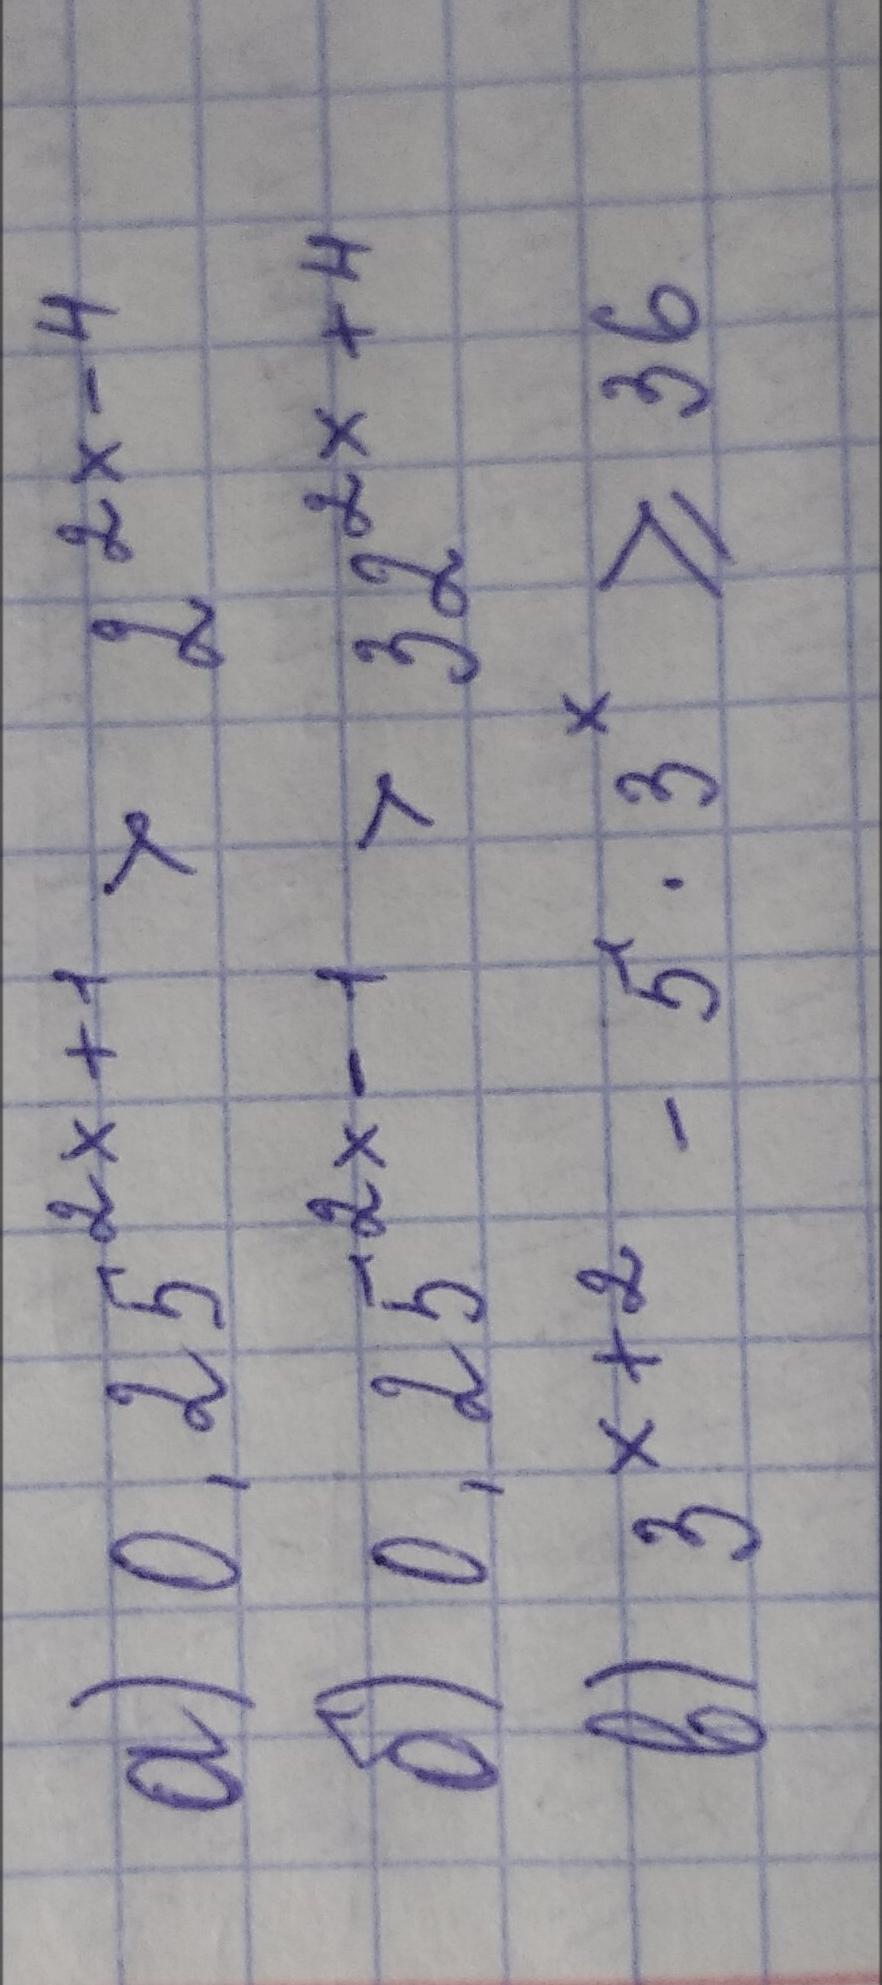 а) 0,25^{2x+1} > 2^{2x-4}
б) 0,25^{2x-1} > 32^{2x+4}
в) 3^{x+2} - 5 · 3^{x} ≥ 36